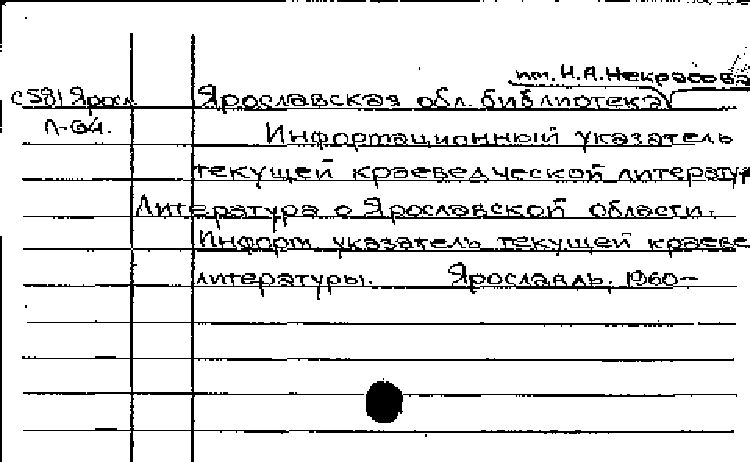 им. Н.А. Некрасова
с581 Яросл. Ярославская обл. библиотека
Л-64. Информационный указатель
текущей краеведческой литератур
Литература о Ярославской области.
Информ. указатель текущей краеве
литературы. Ярославль, 1960-